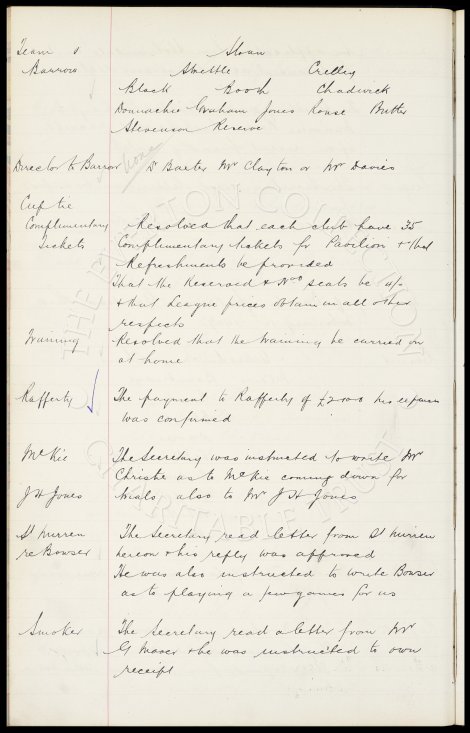 Team v Sloan
Barrow Strettle Crelley
Black Booth Chadwick
Donnachie Graham Jones Rouse Butler
Stevenson Reserve
Director to Barrow Dr Baxter Mr Clayton or Mr Davies
Cup tie
Complimentary Resolved that each club have 35
Tickets Complimentary tickets for Pavilion & that
Refreshments be provided
That the Reserved & Nod seats be
& that League prices obtain in all other
respects
Training Resolved that the training be carried on
at home
Rafferty The payment to Rafferty of his
was confirmed
McKie The Secretary was instructed to write Mr
Christie as to McKie coming down for
J H Jones trials also to Mr J H Jones
St Mirren The Secretary read letter from St Mirren
re Bowser hereon & his reply was approved
He was also instructed to write Bowser
as to playing a few games for us
Smoker The Secretary read a letter from Mr
G & he was instructed to own
receipt
THE EVERTON COLLECTION
CHARITABLE TRUST